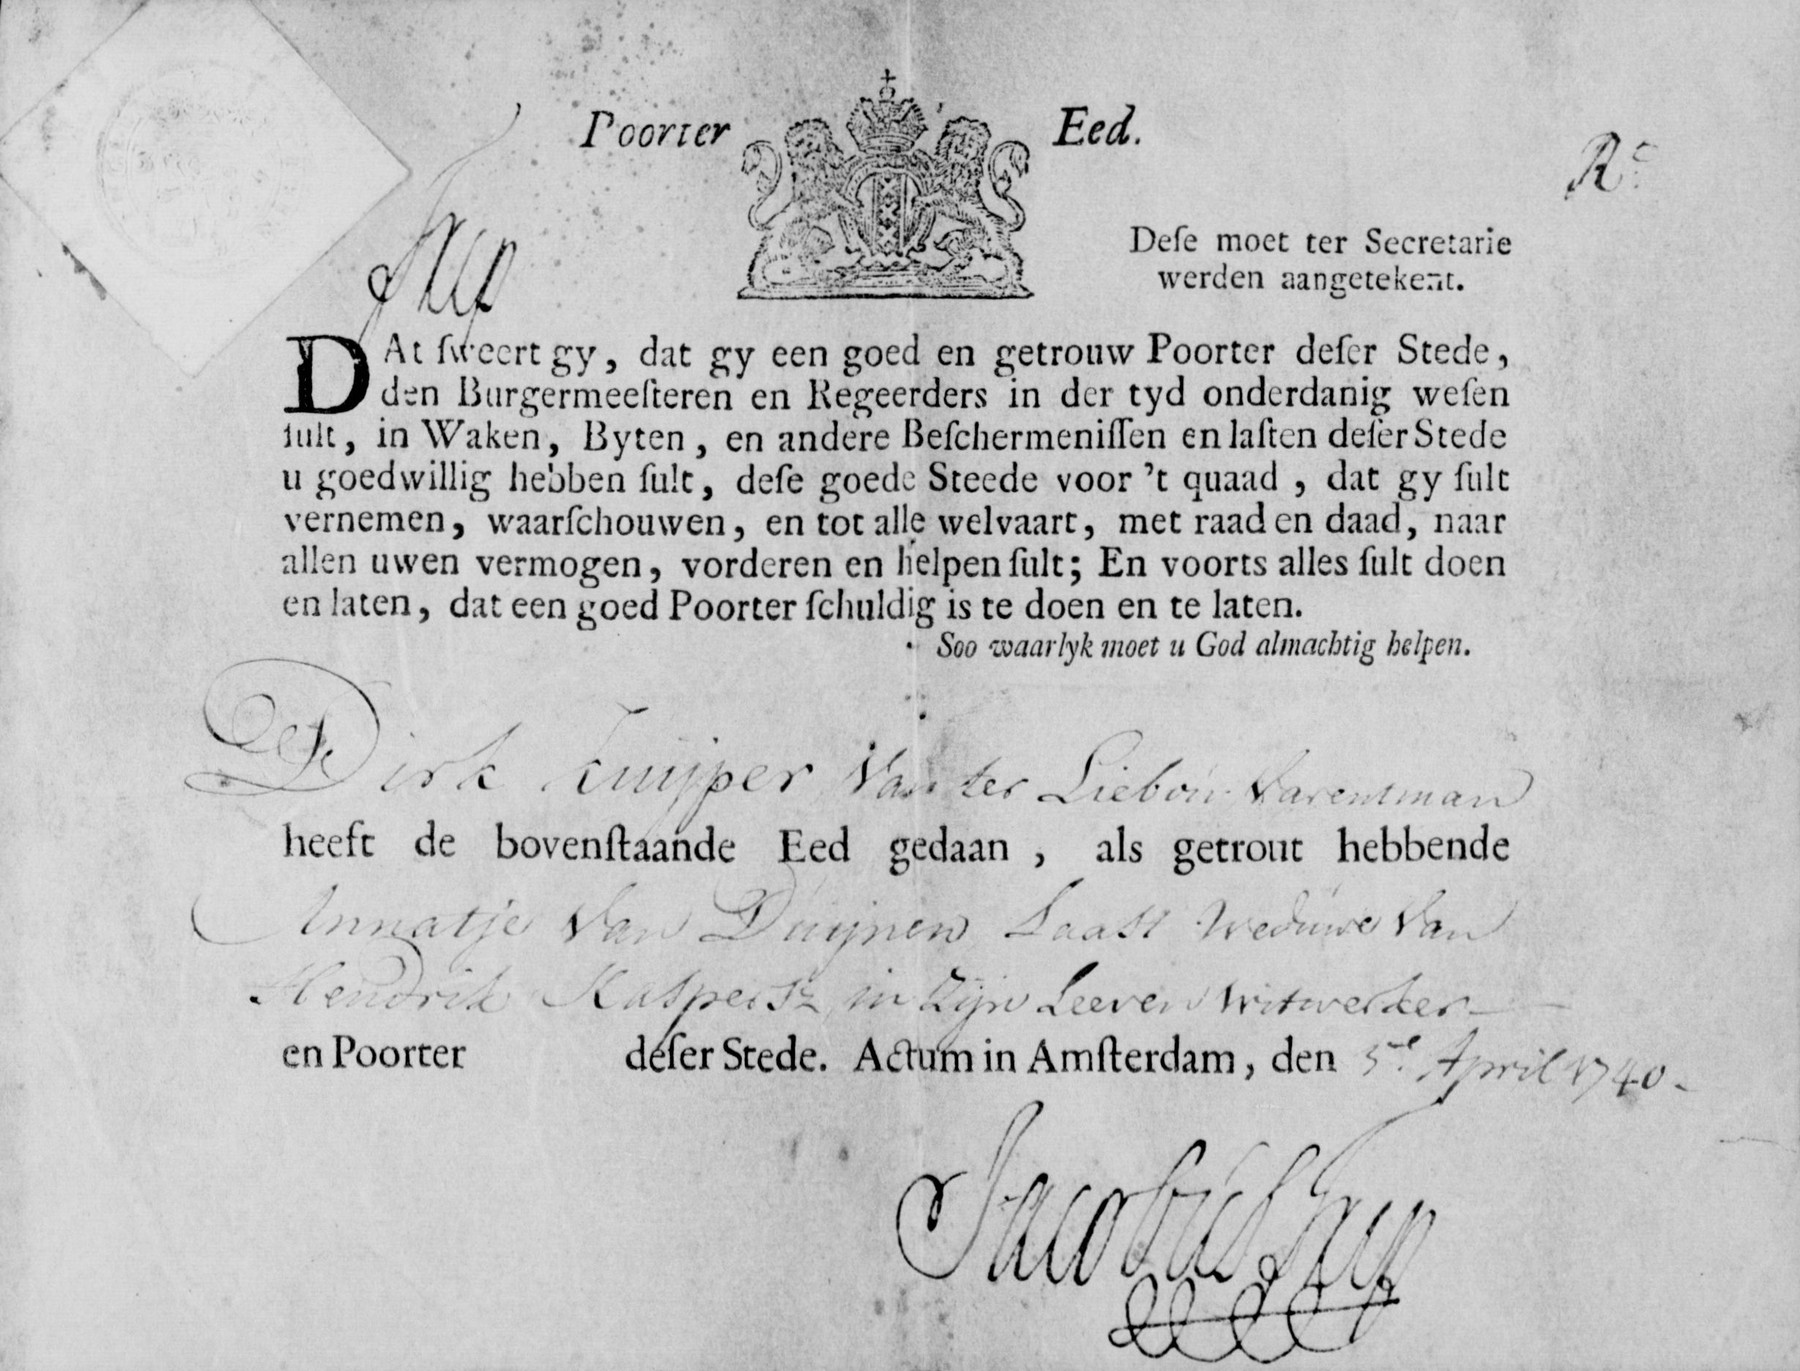 Poorter Eed.
Rc
Deſe moet ter Secretarie
werden aangetekent.
DAt ſweert gy, dat gy een goed en getrouw Poorter deſer Stede,
den Burgermeeſteren en Regeerders in der tyd onderdanig weſen
ſult, in Waken, Byten, en andere Beſchermeniſſen en laſten deſer Stede
u goedwillig hebben ſult, deſe goede Steede voor 't quaad, dat gy ſult
vernemen, waarſchouwen, en tot alle welvaart, met raad en daad, naar
allen uwen vermogen, vorderen en helpen ſult; En voorts alles ſult doen
en laten, dat een goed Poorter ſchuldig is te doen en te laten.
Soo waarlyk moet u God almachtig helpen.
Dirk Kuijper Van ter Varentman
heeft de bovenſtaande Eed gedaan, als getrout hebbende
Annatje Van Duijnen Laast Weduwe Van
Hendrik Kaspersz in Zijn Leeven Witwerker
en Poorter deſer Stede. Actum in Amſterdam, den 5e. April 1740.
Jacobus